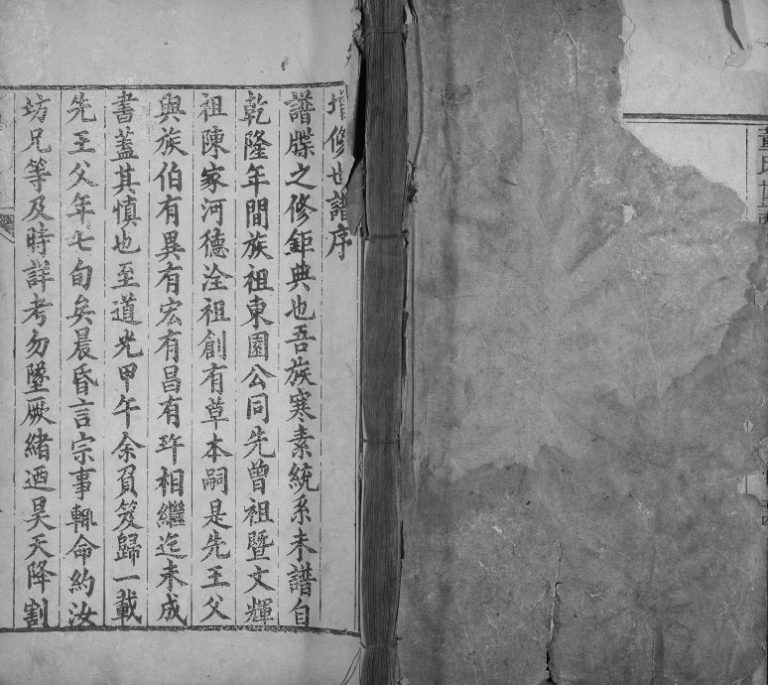 董氏世譜
增修世譜序
譜牒之修鉅典也吾族寒素統系未譜自
乾隆年間族祖東園公同先曾祖暨文輝
祖陳家河德洤祖創有草本嗣是先王父
與族伯有異有宏有昌有玝相繼迄未成
書蓋其慎也至道光甲午余負笈歸一載
先王父年七旬矣晨昏言宗事輒命約汝
坊兄等及時詳考勿墜厥緒迺昊天降割